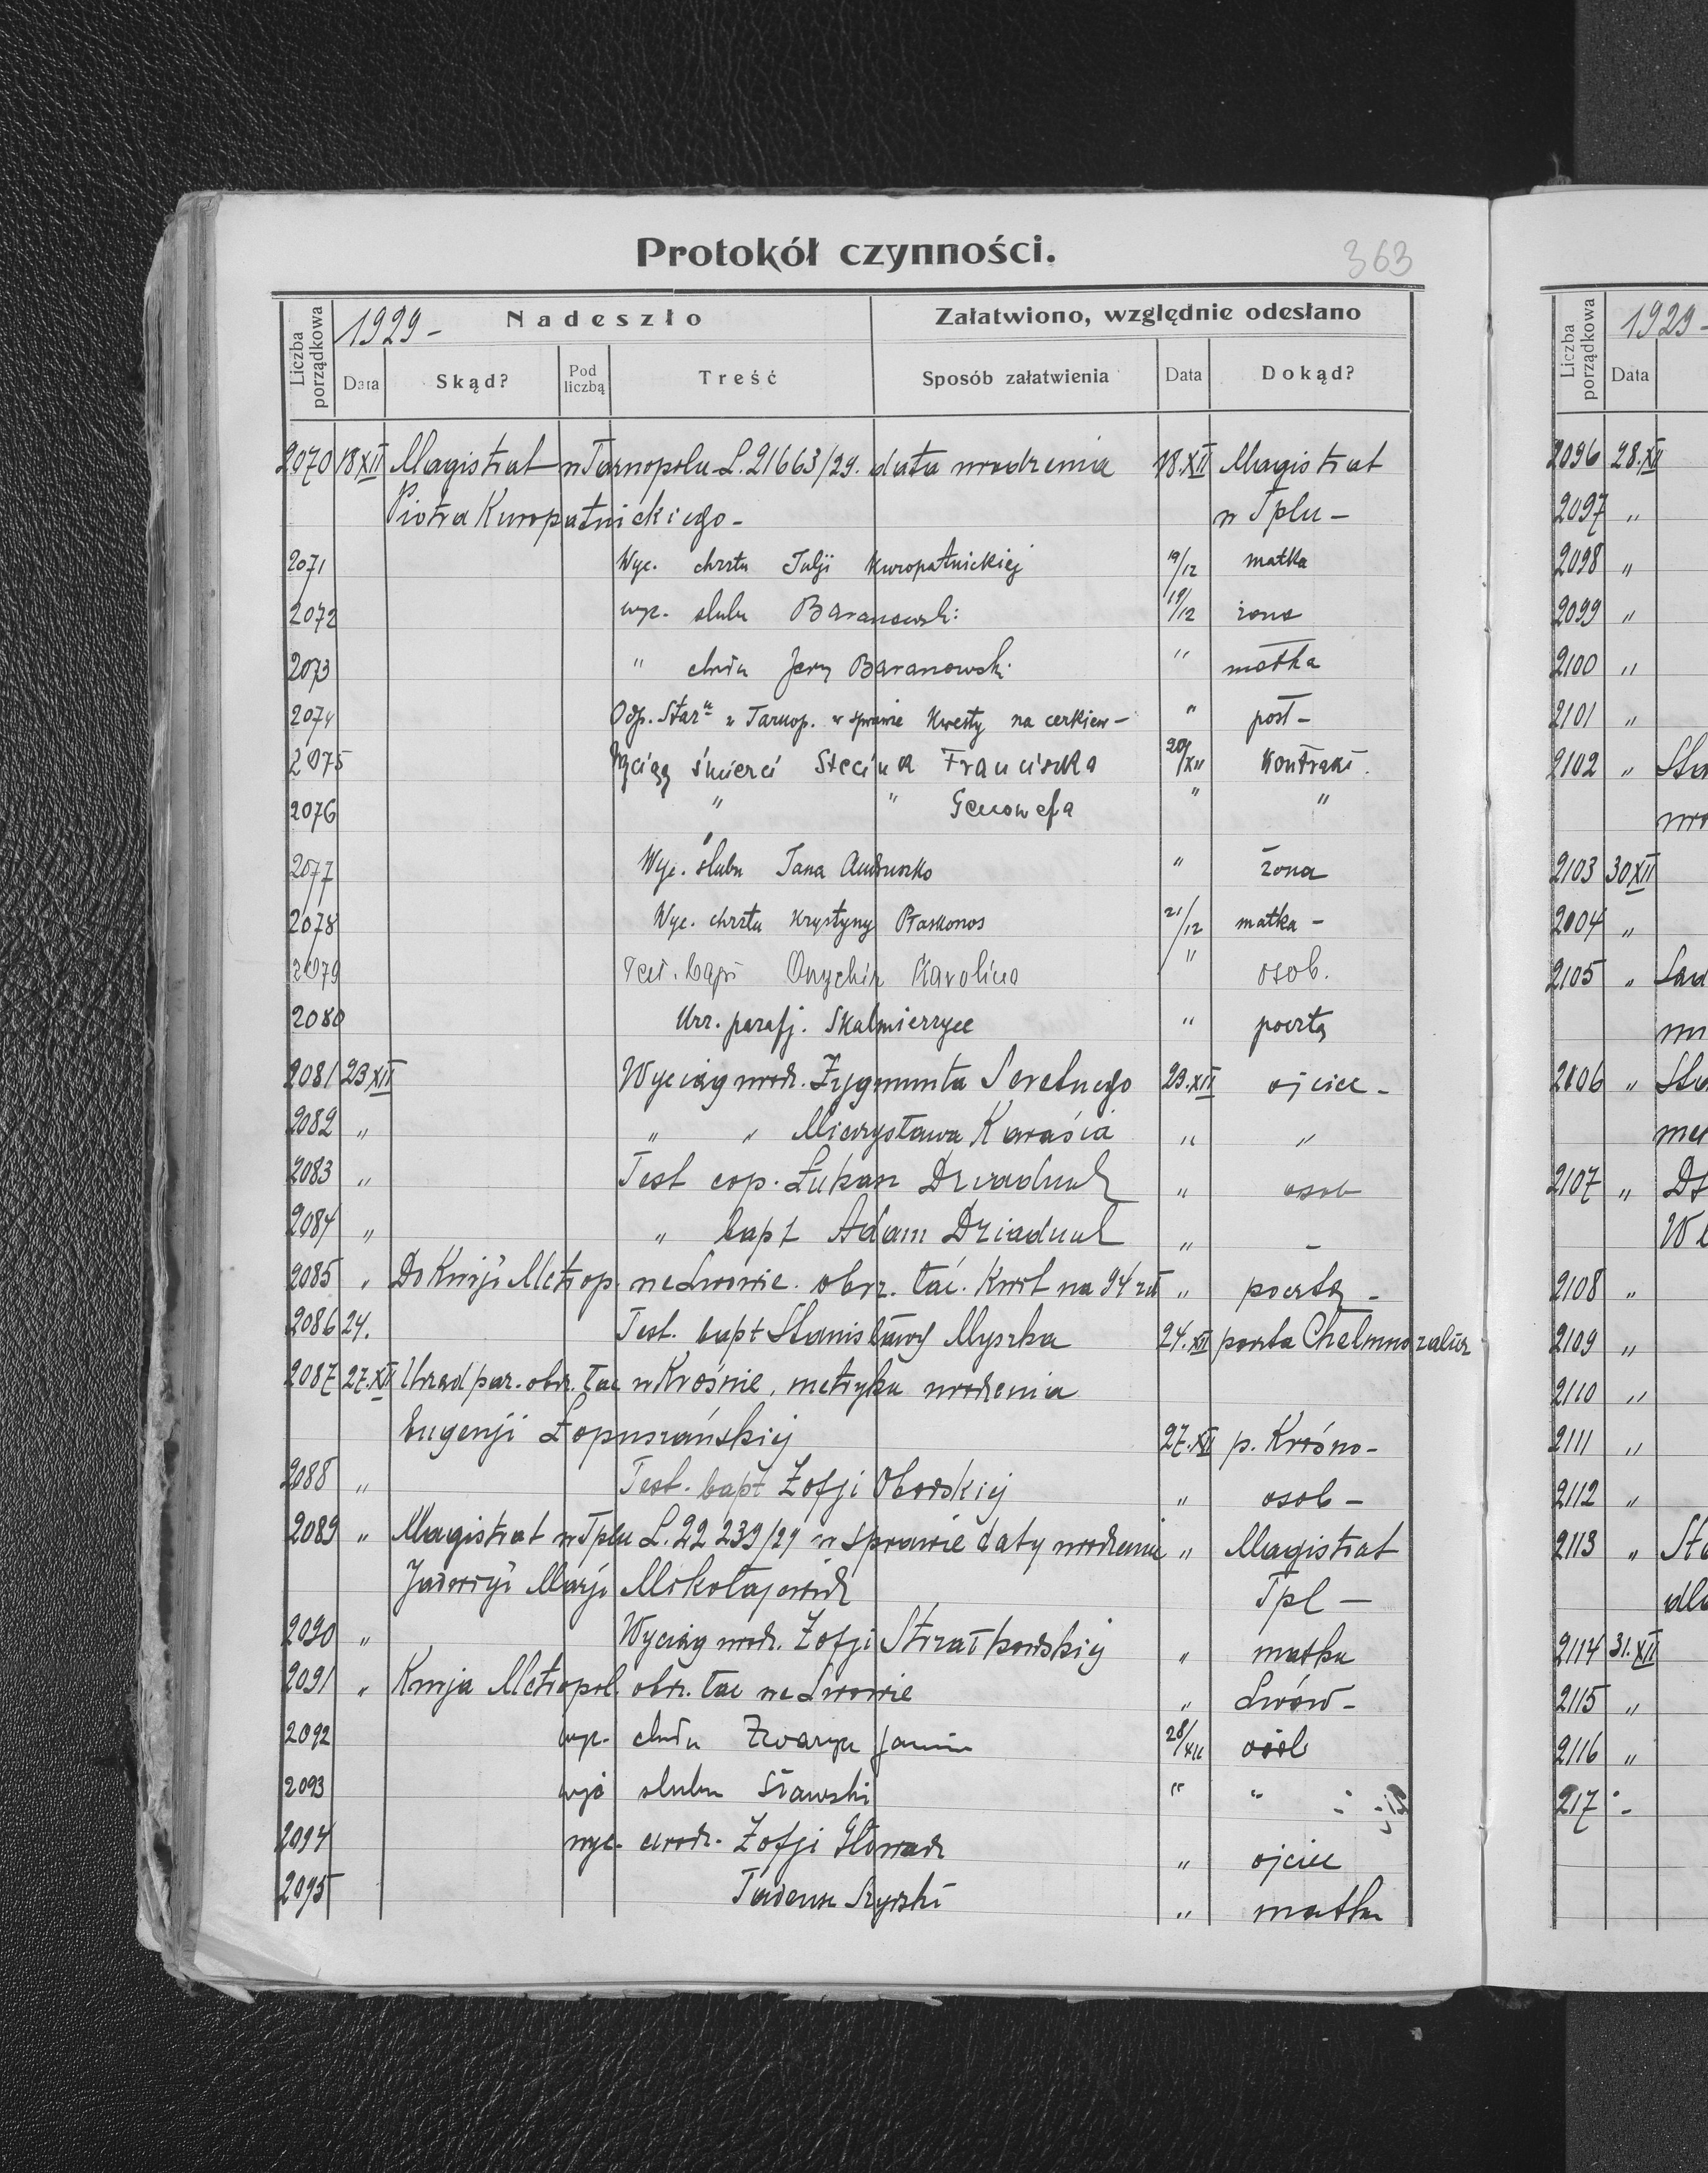 Protokół czynności.
363
Liczba porządkowa
1929-
Nadeszło
Załatwiono, względnie odesłano
Data
Skąd?
Pod liczbą
Treść
Sposób załatwienia
Data
Dokąd?
2070 18 XII Magistrat w Tarnopolu L. 21663/29. data urodzenia 18.XII Magistrat
Piotra Kuropatnickiego - w Tplu -
2071 Wyc. chrztu Julji Kuropatnickiej 19/12 matka
2072 wyc. ślubu Baranowski 19/12 żona
2073 " chrztu Jerzy Baranowski " matka
2074 Odp. Star. w Tarnop. w sprawie Kwesty na cerkiew - " post -
2075 Wyciąg śmierci Steciuk Franciszka 20/XII Kontrakt.
2076 " " Genowefa " "
2077 Wyc. ślubu Jana Andruszko " żona
2078 Wyc. chrztu Krystyny Płaskonos 21/12 matka -
2079 Test. bapt Karolina " osob.
2080 Urz. parafj. Skalmierzyce " pocztą
2081 23 XII Wyciąg urodz. Zygmunta Seretnego 23.XII ojciec -
2082 " " " Mieczysława Karasia " "
2083 " Test cop. Łukasz Dziaduch " osob
2084 " " bapt Adam Dziaduch " -
2085 " Do Kurji Metrop. we Lwowie. obrz. łac. Kwit na 24 zł " pocztą -
2086 24. Test. bapt Stanisławy Myszka 24.XII poczta Chełmno
2087 27.XII Urząd par. obrz. łac w Krośnie, metryka urodzenia
Eugenji Łopuszańskiej 27.XII p. Krosno -
2088 " Test. bapt Zofji Oborskiej " osob -
2089 " Magistrat w Tplu L. 22 239/29 w sprawie daty urodzenia " Magistrat
Jadwigi Marji Mikołajewicz Tpl -
2090 " Wyciąg urodz. Zofji Strzałkowskiej " matka
2091 " Kurja Metropol. obrz. łac we Lwowie " Lwów -
2092 wyc. chrztu Zwarycz Janina 28/XII osob
2093 wyc ślubu Sławski " "
2094 wyc. urodz. Zofji Głowacz " ojciec
2095 Tadeusz " matka
Liczba porządkowa
1929 -
Data
2096 28.XII
2097 "
2098 "
2099 "
2100 "
2101 "
2102 "
2103 30 XII
2004 "
2105 "
2106 "
2107 "
2108 "
2109 "
2110 "
2111 "
2112 "
2113 "
2114 31.XII
2115 "
2116 "
217